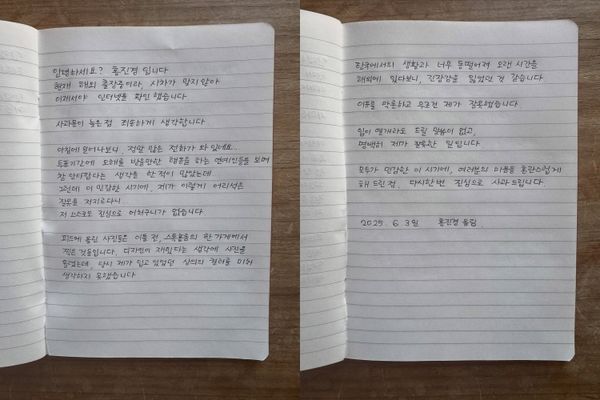 안녕하세요? 홍진경 입니다
현재 해외 출장중이라, 시차가 맞지않아
이제서야 인터넷을 확인 했습니다
사과문이 늦은점 죄송하게 생각합니다
아침에 일어나보니, 정말 많은 전화가 와 있네요..
투표기간에 오해를 받을만한 행동을 하는 연예인들을 보며
참 안타깝다는 생각을 한 적이 많았는데..
그런데 이 민감한 시기에, 제가 이렇게 어리석은
잘못을 저지르다니..
저 스스로도 진심으로 어처구니가 없습니다.
피드에 올린 사진들은 이틀 전, 스톡홀름의 한 가게에서
찍은 것들입니다. 디자인이 재밌다는 생각에 사진을
올렸는데, 당시 제가 입고 있었던 상의의 컬러를 미처
생각하지 못했습니다
한국에서의 생활과 너무 동떨어져 오랜 시간을
해외에 있다보니, 긴장감을 잃었던 것 같습니다.
이유를 막론하고 모든건 제가 잘못했습니다.
입이 열개라도 드릴 말씀이 없고,
명백히 제가 잘못한 일입니다.
모두가 민감한 이 시기에, 여러분의 마음을 혼란스럽게
해 드린점, 다시한번 진심으로 사과드립니다.
2025. 6. 3일 홍진경 올림.